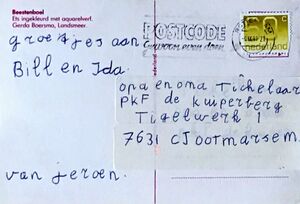 Beestenboel
Ets ingekleurd met aquarelverf.
Gerda Boersma, Landsmeer.
groetjes aan
Bill en Ida.
van jeroen.
POSTCODE
Gewoon even doen
nederland
opa en oma Tichelaar
PKF de Kuiperberg
Tigelwerk 1
7631 CJ ootmarsem.